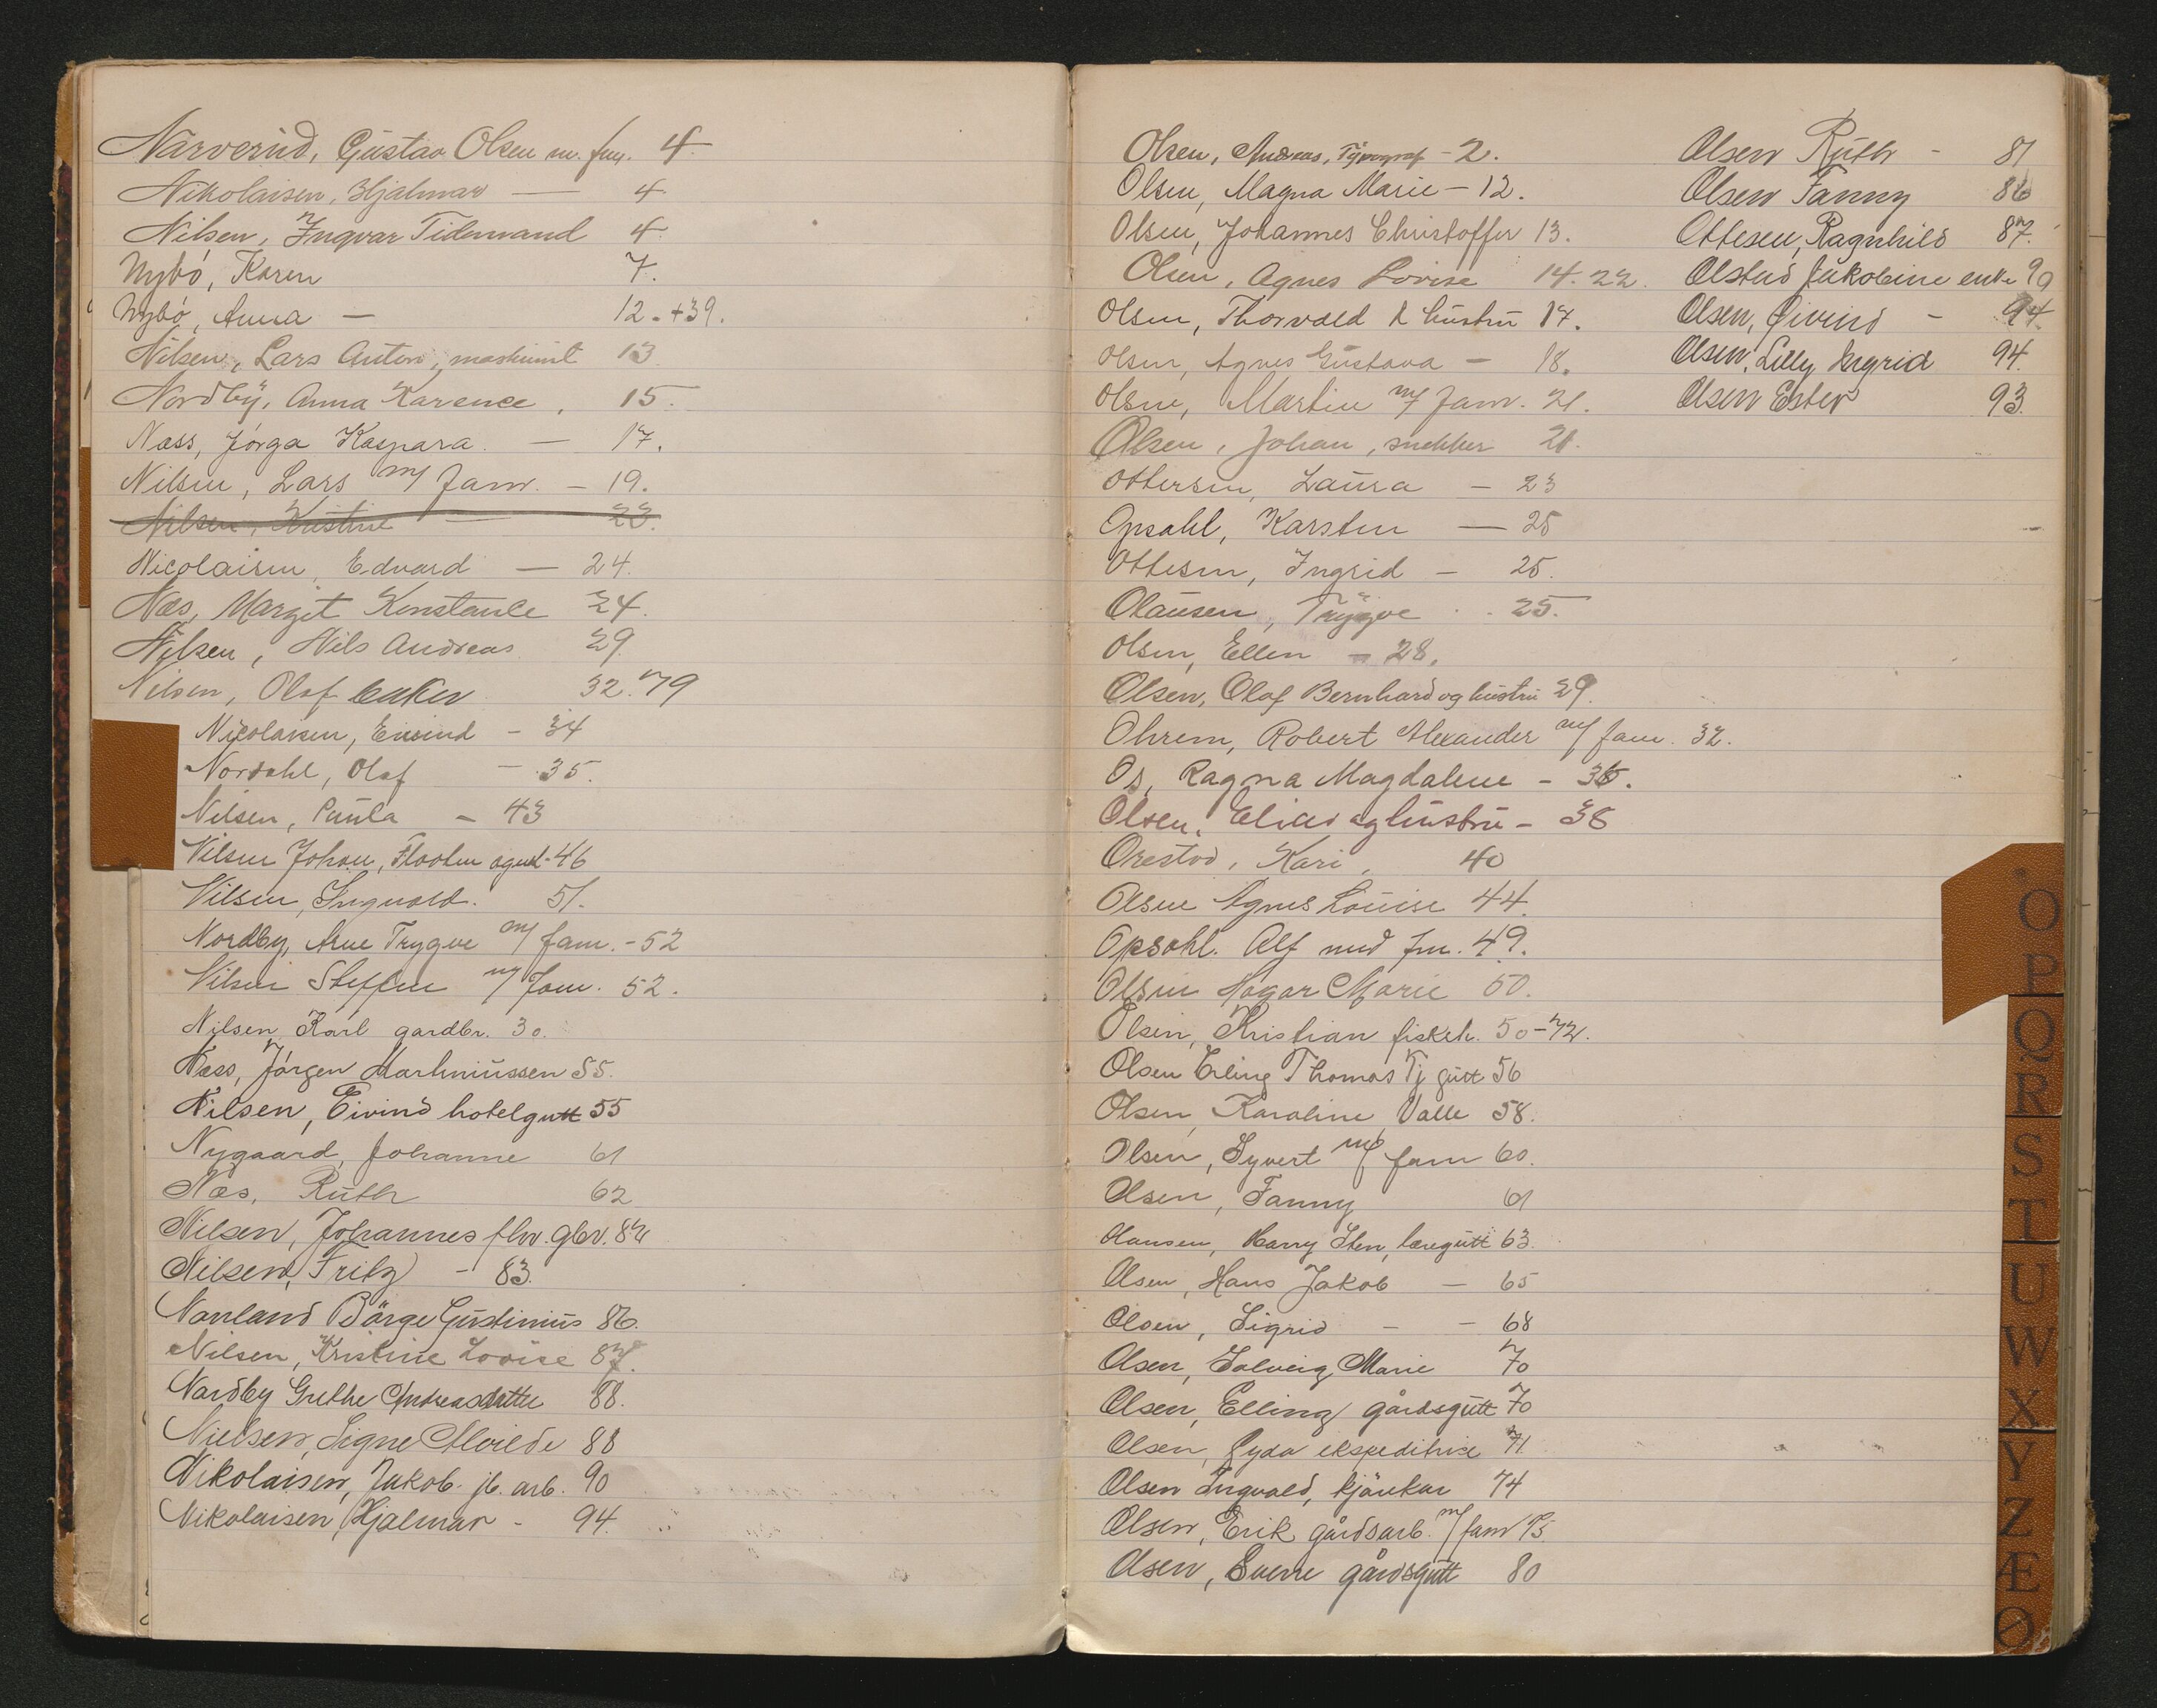 Narverud, Gustav Olsen m. fm. 4
Nikolaisen, Hjalmar — 4
Nilsen, Ingvar Tidemand 4
Nybø, Karen 7.
Nybø, Anna — 12 - +39.
Nilsen, Lars Anton, maskinist 13
Nordby, Anna Karence, 15.
Næss, Jørga Kaspara. — 17.
Nilsen, Lars m/ fam. — 19.
Nilsen, Kristine — 23.
Nicolaisen, Edvard — 24.
Næs, Margit Konstance 24.
Nilsen, Nils Andreas 29
Nilsen, Olaf enker 32. 79
Nicolaisen, Eivind - 34
Nordahl, Olaf — 35.
Nilsen, Paula - 43
Nilsen Johan, Flooten agent - 46
Nilsen, Ingvald. 51.
Nordby, Arne Trygve m/ fam. - 52
Nilsen Steffen m/ fam. 52.
Nilsen Karl gardbr. 30.
Næss, Jörgen Marhniussen 55.
Nilsen, Eivind hotelgutt 55
Nygaard, Johanne 61
Næs, Ruth 62
Nilsen, Johannes fhv. gbr. 82
Nilsen, Fritz - 83.
Nanland Børge Gustinius 86.
Nilsen, Kristine Lovise 87.
Nardby Grethe Andreasdatter 88.
Nielsen, Signe Alvilde 88
Nikolaisen, Jakob. jb. arb. 90
Nikolaisen, Hjalmar - 94.
Olsen, Andreas, Typograf - 2.
Olsen, Magna Marie - 12.
Olsen, Johannes Christoffer 13.
Olsen, Agnes Lovise 14. 22.
Olsen, Thorvald & hustru 17.
Olsen, Agnes Gustava — 18.
Olsen, Martin m/ fam. 21.
Olsen, Johan, snekker 21.
Ottersen, Laura — 23
Opsahl, Karsten — 25
Ottesen, Ingrid — 25.
Olausen, Trygve . . 25.
Olsen, Ellen — 28.
Olsen, Olaf Bernhard og hustru 29.
Ohrem, Robert Alexander m/ fam. 32.
Os, Ragna Magdalene - 36.
Olsen, Elias og hustru - 38
Orestod, Kari, 40
Olsen Agnes Louise 44.
Opsahl. Alf med fm. 49.
Olsen Hagar Marie 50.
Olsen, Kristian fiskeh. 50 - 72.
Olsen Erling Thomas Tj gutt 56
Olsen, Karoline Valle 58.
Olsen, Syvert m/ fam 60.
Olsen, Fanny 61
Hansen, Harry Sten, læregutt 63.
Olsen, Hans Jakob — 65
Olsen, Sigrid - - 68
Olsen, Solveig Marie 70
Olsen, Elling gårdsgutt 70
Olsen, Gyda ekspeditrise 71
Olsen Ingvald, kjörekar 74
Olsen, Erik gårdsarb. m/ fam 75.
Olsen, Sverre gårdsgutt 80
Olsen Ruth - 81
Olsen Fanny 86
Ottesen, Ragnhild 87.
Olstad Jakobine enke 90
Olsen, Eivind - 94.
Olsen, Lilly Ingrid 94.
Olsen Ester 93.
O
P
Q
R
S
T
U
W
X
Y
Z
Æ
Ø